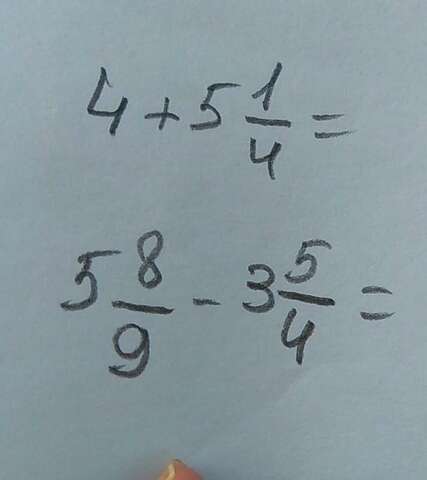 4 + 5 1/4 =
5 8/9 - 3 5/4 =